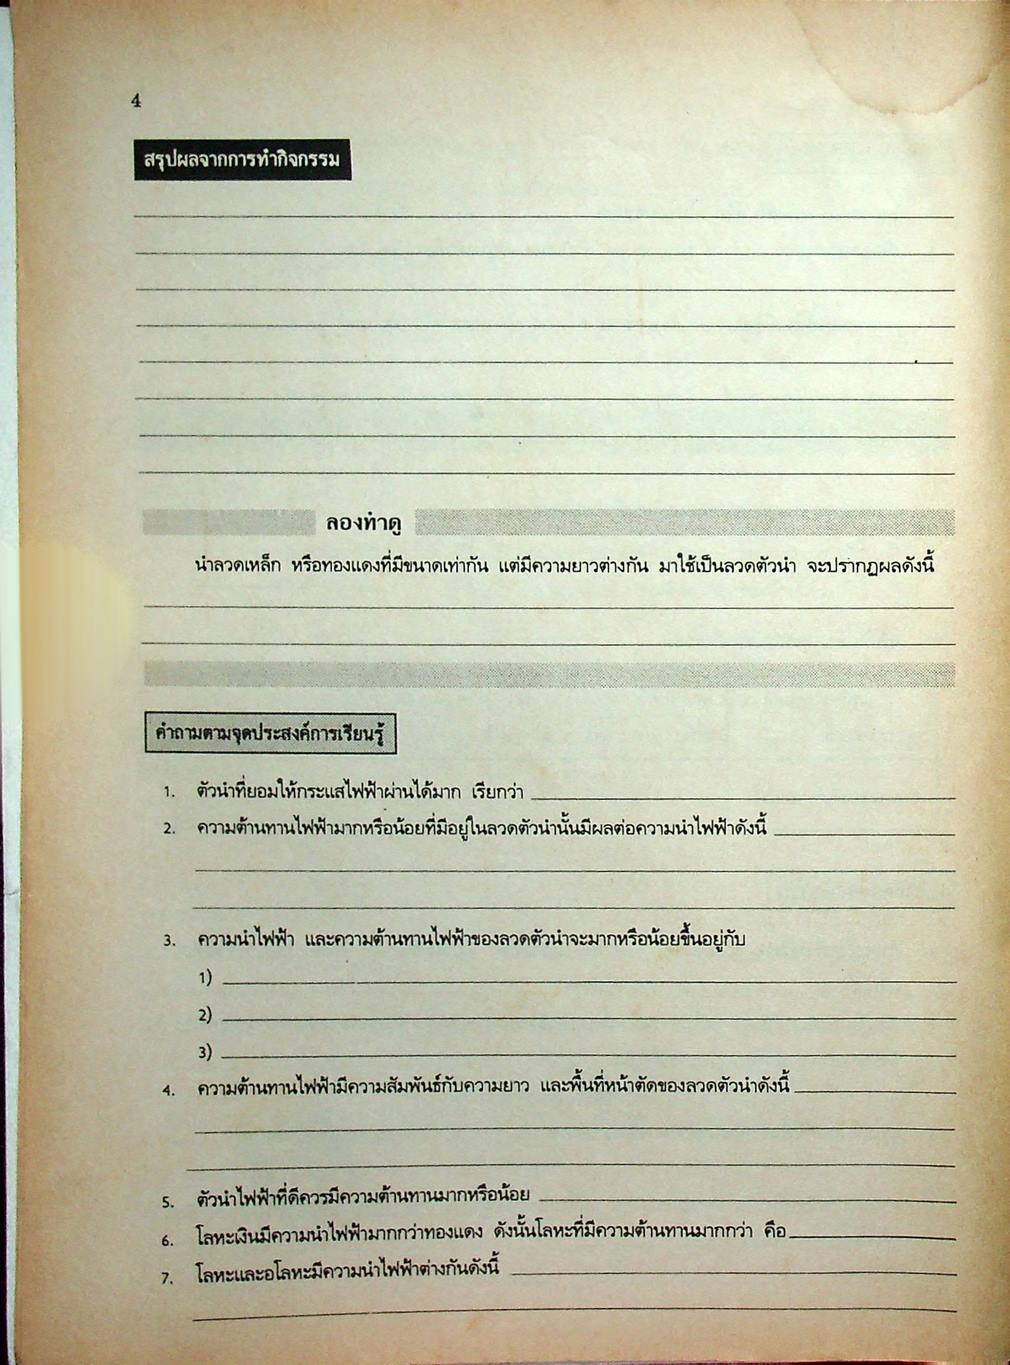 4
สรุปผลจากการทำกิจกรรม
ลองทำดู
นำลวดเหล็ก หรือทองแดงที่มีขนาดเท่ากัน แต่มีความยาวต่างกัน มาใช้เป็นลวดตัวนำ จะปรากฏผลดังนี้
คำถามตามจุดประสงค์การเรียนรู้
1. ตัวนำที่ยอมให้กระแสไฟฟ้าผ่านได้มาก เรียกว่า
2. ความต้านทานไฟฟ้ามากหรือน้อยที่มีอยู่ในลวดตัวนำนั้นมีผลต่อความนำไฟฟ้าดังนี้
3. ความนำไฟฟ้า และความต้านทานไฟฟ้าของลวดตัวนำจะมากหรือน้อยขึ้นอยู่กับ
1)
2)
3)
4. ความต้านทานไฟฟ้ามีความสัมพันธ์กับความยาว และพื้นที่หน้าตัดของลวดตัวนำดังนี้
5. ตัวนำไฟฟ้าที่ดีควรมีความต้านทานมากหรือน้อย
6. โลหะเงินมีความนำไฟฟ้ามากกว่าทองแดง ดังนั้นโลหะที่มีความต้านทานมากกว่า คือ
7. โลหะและอโลหะมีความนำไฟฟ้าต่างกันดังนี้